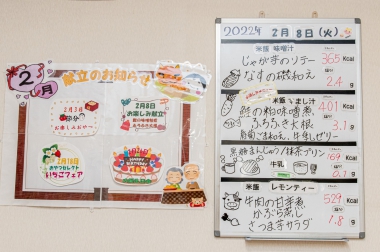 2月
献立のお知らせ
2月3日
節分
お楽しみおやつ
2月8日
お楽しみ献立
2月18日
おやつセレクト
いちごフェア
2022年 2月 8日(火)
米飯 味噌汁
じゃが芋のソテー
なすの磯和え
365 Kcal
2.4 g
米飯 すまし汁
鮭の粕味噌煮
ふろふき大根
401 Kcal
3.1 g
黒糖まんじゅう/抹茶プリン
牛乳
169 Kcal
0.1 g
米飯 レモンティー
牛肉の甘辛煮
かぶら蒸し
さつま芋サラダ
529 Kcal
1.8 g